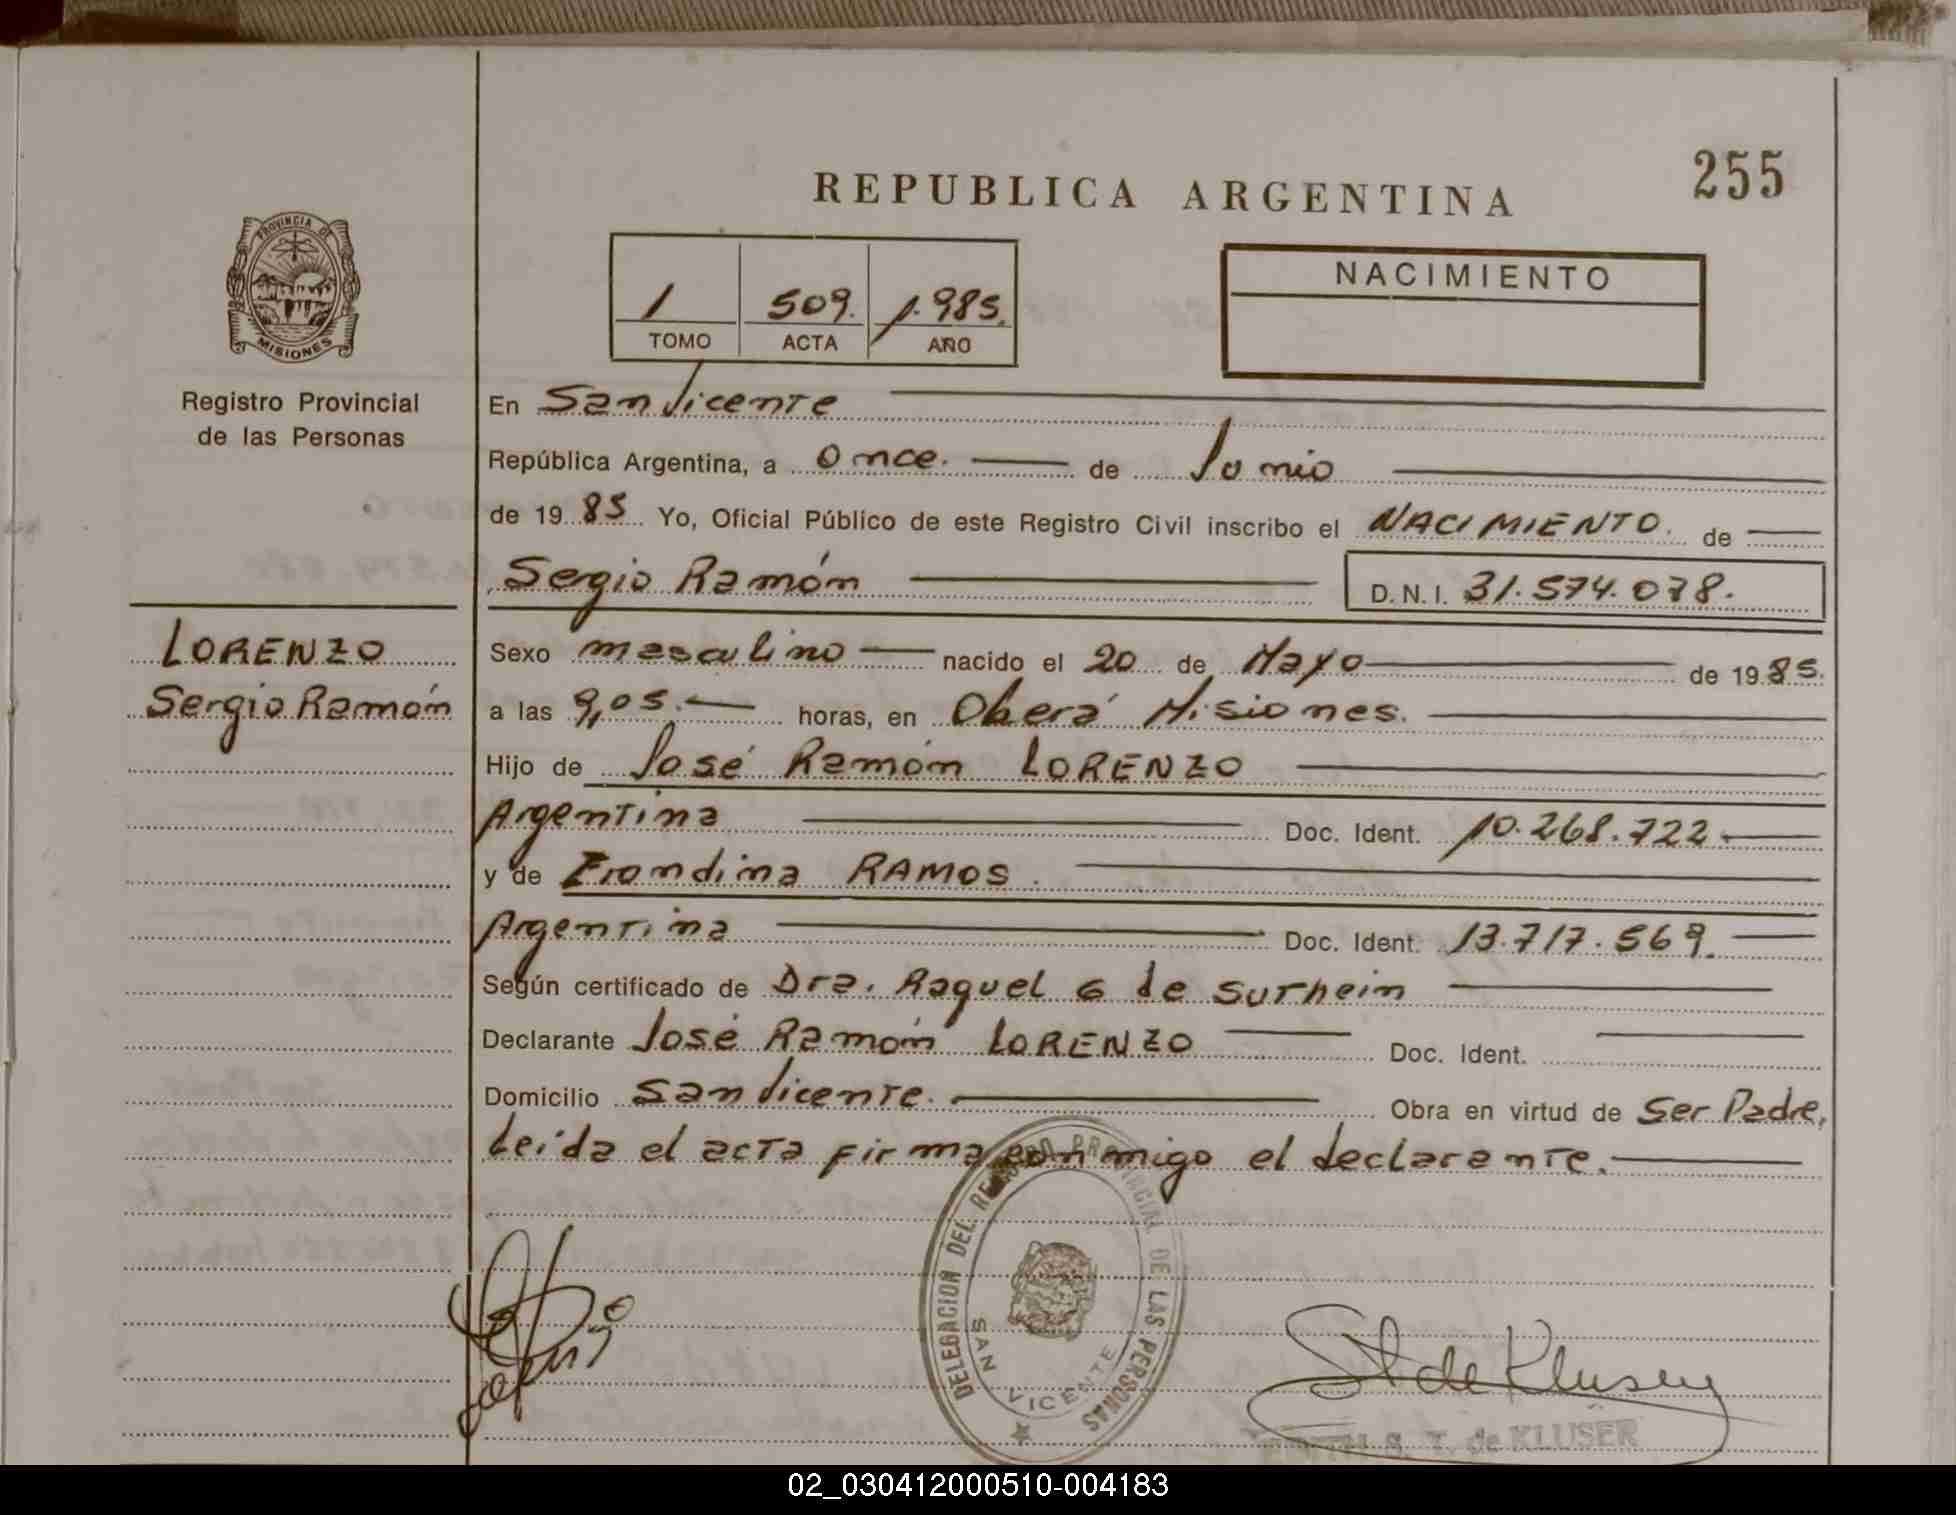 255
REPUBLICA ARGENTINA
PROVINCIA DE
MISIONES
Registro Provincial
de las Personas
1 509. 1.985.
TOMO ACTA AÑO
NACIMIENTO
En San Vicente
República Argentina, a once. de Junio
de 19 85 Yo, Oficial Público de este Registro Civil inscribo el NACIMIENTO. de
Sergio Ramón D.N.I. 31.574.078.
LORENZO
Sergio Ramón
Sexo masculino nacido el 20 de Mayo de 1985.
a las 9,05. horas, en Oberá Misiones.
Hijo de José Ramón LORENZO
Argentina Doc. Ident. 10.268.722
y de RAMOS.
Argentina Doc. Ident. 13.717.569.
Según certificado de Dra. Raquel G de
Declarante José Ramón LORENZO Doc. Ident.
Domicilio San Vicente. Obra en virtud de Ser Padre,
Leída el acta firma conmigo el declarante.
DELEGACION DEL REGISTRO PROVINCIAL DE LAS PERSONAS
SAN VICENTE
S. T. de KLUSER
02_030412000510-004183